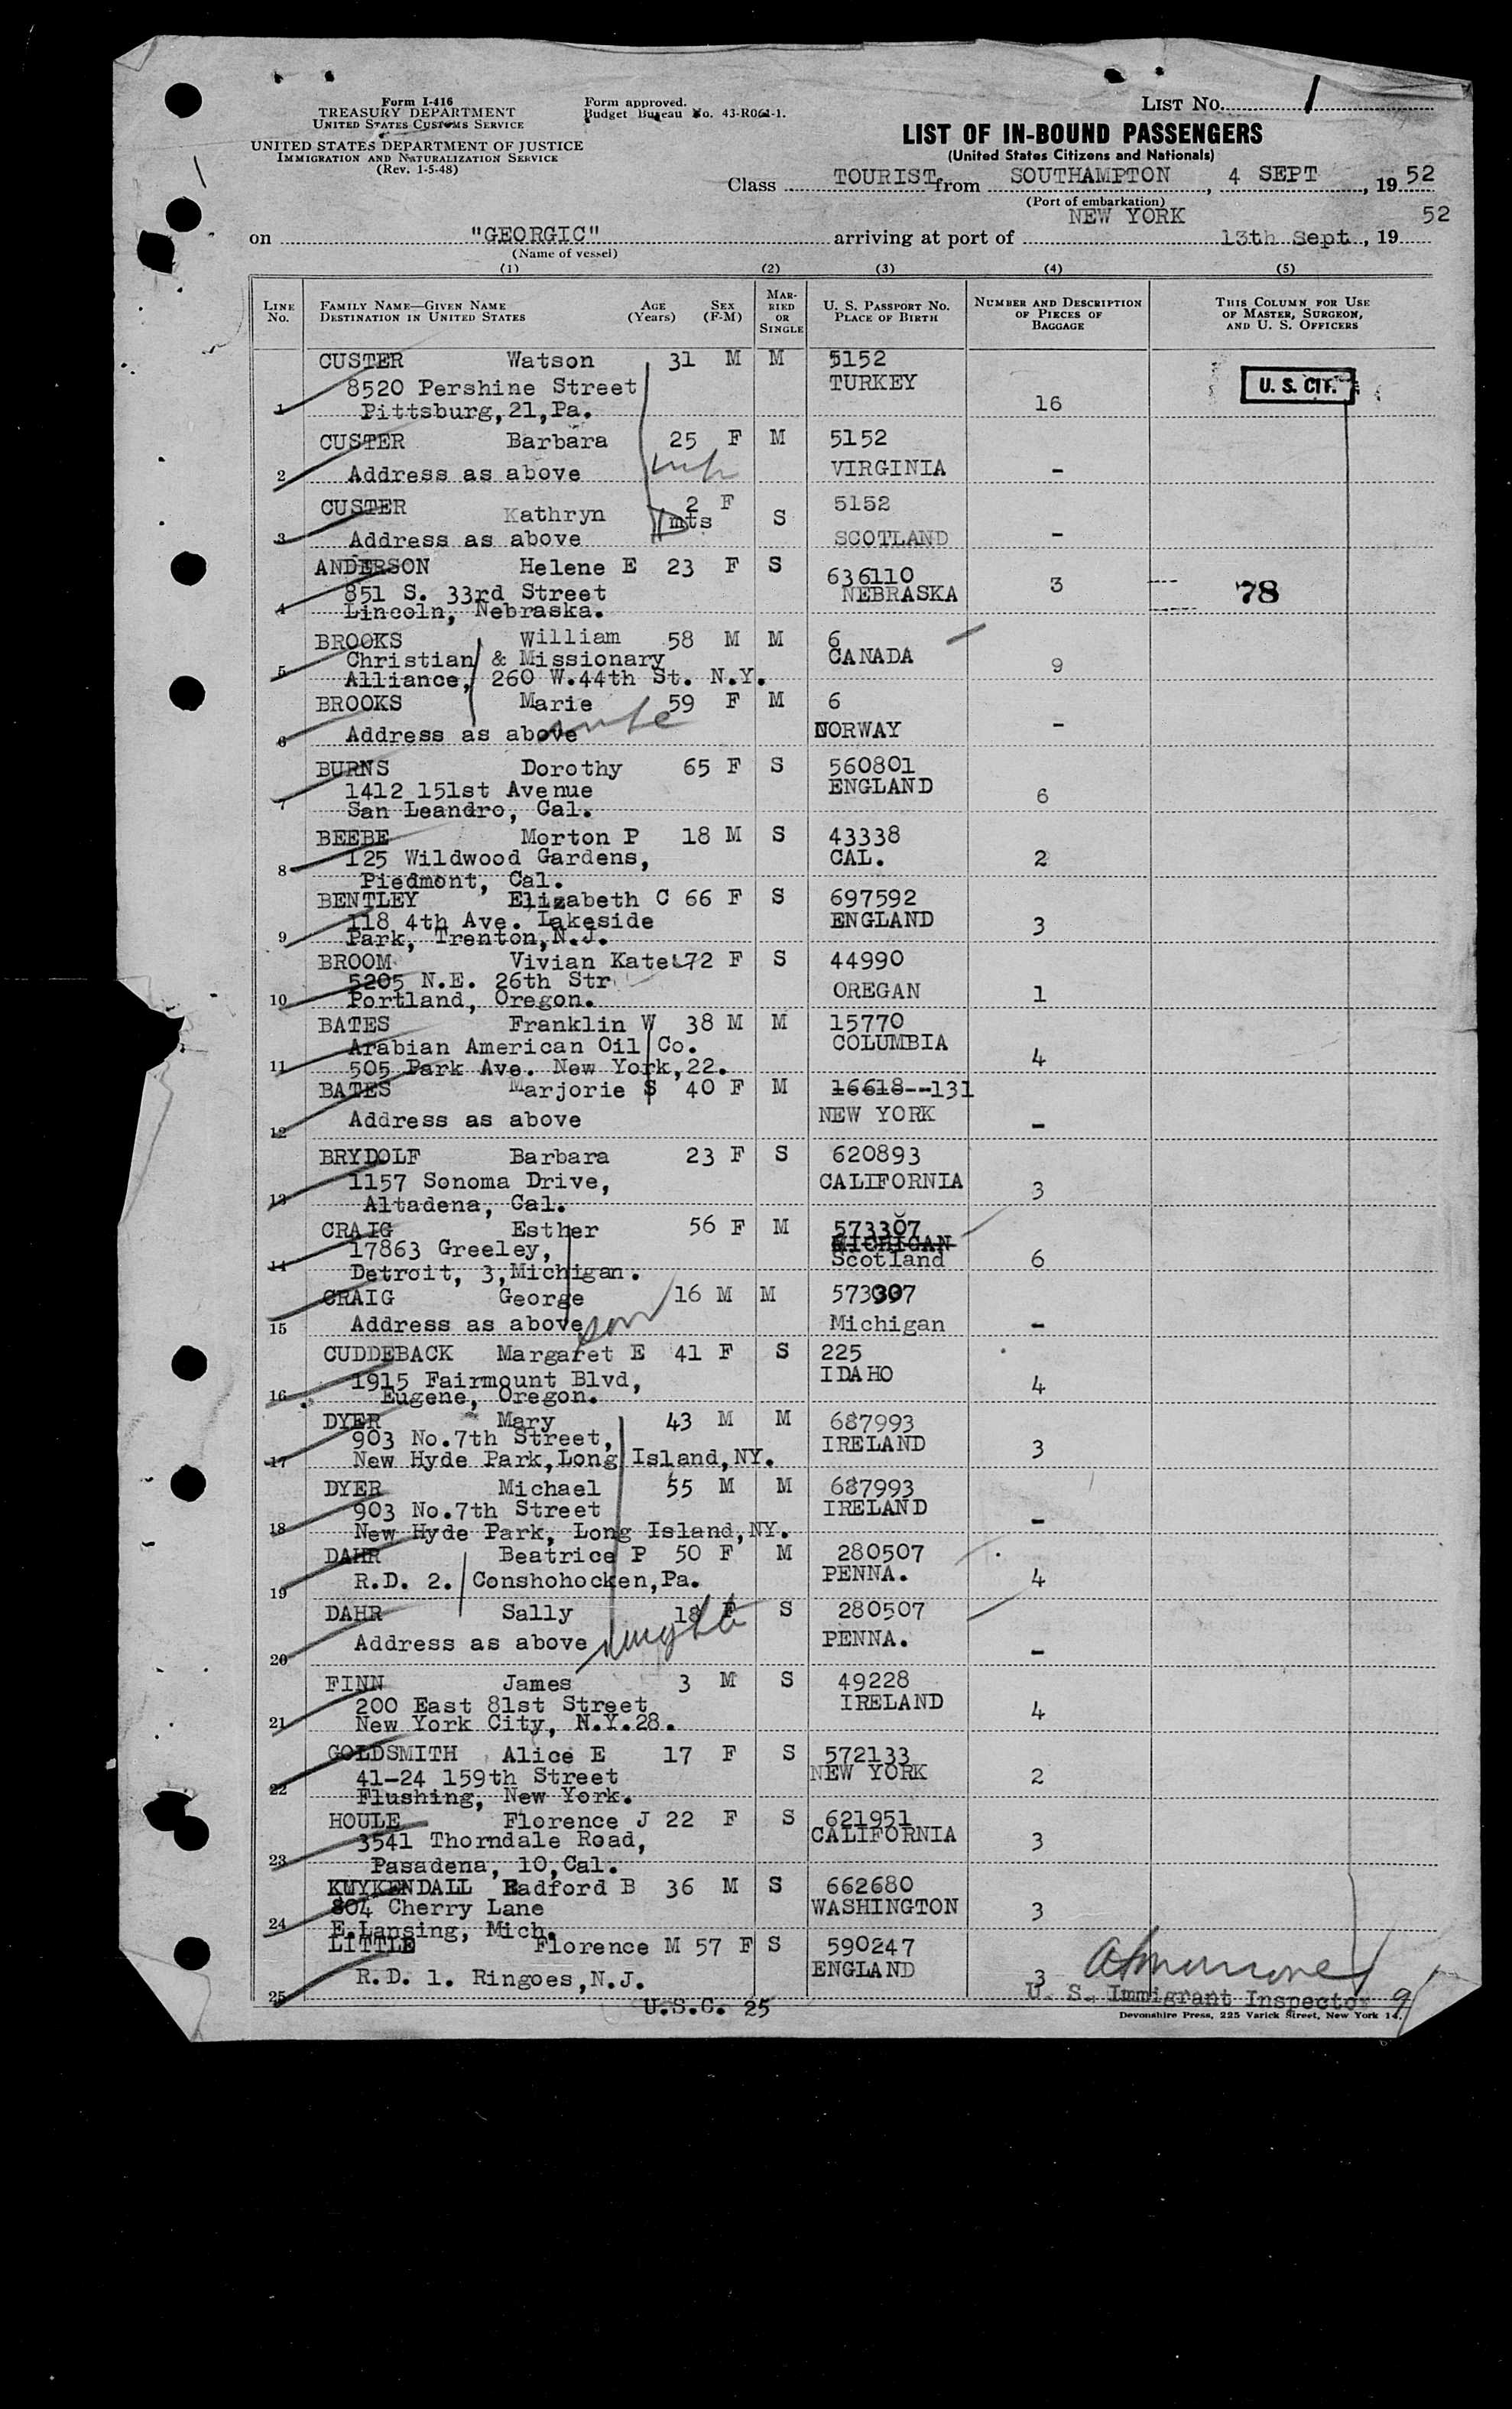 Form I-416
TREASURY DEPARTMENT
UNITED STATES CUSTOMS SERVICE
UNITED STATES DEPARTMENT OF JUSTICE
IMMIGRATION AND NATURALIZATION SERVICE
(Rev. 1-5-48)
Form approved.
Budget Bureau No. 43-R061-1.
LIST NO. 1
LIST OF IN-BOUND PASSENGERS
(United States Citizens and Nationals)
Class TOURIST from SOUTHAMPTON, 4 SEPT, 1952
(Port of embarkation)
on "GEORGIC" arriving at port of NEW YORK 13th Sept, 1952
(Name of vessel)
(1) (2) (3) (4) (5)
LINE NO. FAMILY NAME—GIVEN NAME DESTINATION IN UNITED STATES AGE (Years) SEX (F-M) MARRIED OR SINGLE U. S. PASSPORT NO. PLACE OF BIRTH NUMBER AND DESCRIPTION OF PIECES OF BAGGAGE THIS COLUMN FOR USE OF MASTER, SURGEON, AND U. S. OFFICERS
CUSTER Watson 31 M M 5152
8520 Pershine Street TURKEY U. S. CIT.
1 Pittsburg,21,Pa. 16
CUSTER Barbara 25 F M 5152
2 Address as above VIRGINIA -
CUSTER Kathryn 2 mts F S 5152
3 Address as above SCOTLAND -
ANDERSON Helene E 23 F S 636110
851 S. 33rd Street NEBRASKA 3 78
4 Lincoln, Nebraska.
BROOKS William 58 M M 6
Christian & Missionary CANADA
5 Alliance, 260 W.44th St. N.Y. 9
BROOKS Marie 59 F M 6
6 Address as above wife NORWAY -
BURNS Dorothy 65 F S 560801
1412 151st Avenue ENGLAND
7 San Leandro, Cal. 6
BEEBE Morton P 18 M S 43338
125 Wildwood Gardens, CAL. 2
8 Piedmont, Cal.
BENTLEY Elizabeth C 66 F S 697592
118 4th Ave. Lakeside ENGLAND
9 Park, Trenton,N.J. 3
BROOM Vivian Kate 72 F S 44990
5205 N.E. 26th Str
10 Portland, Oregon. OREGAN 1
BATES Franklin W 38 M M 15770
Arabian American Oil Co. COLUMBIA
11 505 Park Ave. New York,22. 4
BATES Marjorie S 40 F M 16618--131
12 Address as above NEW YORK -
BRYDOLF Barbara 23 F S 620893
1157 Sonoma Drive, CALIFORNIA
13 Altadena, Cal. 3
CRAIG Esther 56 F M 573307
17863 Greeley, MICHIGAN
14 Detroit, 3,Michigan. Scotland 6
CRAIG George 16 M M 573307
15 Address as above son Michigan -
CUDDEBACK Margaret E 41 F S 225
1915 Fairmount Blvd, IDAHO
16 Eugene, Oregon. 4
DYER Mary 43 M M 687993
903 No.7th Street, IRELAND
17 New Hyde Park,Long Island,NY. 3
DYER Michael 55 M M 687993
903 No.7th Street IRELAND
18 New Hyde Park, Long Island,NY. -
DAHR Beatrice P 50 F M 280507
19 R.D. 2. Conshohocken,Pa. PENNA. 4
DAHR Sally 18 F S 280507
20 Address as above PENNA. -
FINN James 3 M S 49228
200 East 81st Street IRELAND
21 New York City, N.Y.28. 4
GOLDSMITH Alice E 17 F S 572133
41-24 159th Street NEW YORK
22 Flushing, New York. 2
HOULE Florence J 22 F S 621951
3541 Thorndale Road, CALIFORNIA
23 Pasadena, 10,Cal. 3
KUYKENDALL Radford B 36 M S 662680
804 Cherry Lane WASHINGTON
24 E.Lansing, Mich. 3
LITTLE Florence M 57 F S 590247
R.D. 1. Ringoes,N.J. ENGLAND 3
25 U. S. Immigrant Inspector
U.S.C. 25
Devonshire Press, 225 Varick Street, New York 14.